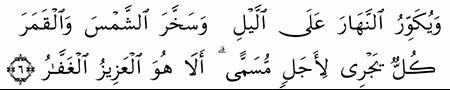 وَيُكَوِّرُ ٱلنَّهَارَ عَلَى ٱلَّيْلِ وَسَخَّرَ ٱلشَّمْسَ وَٱلْقَمَرَ
كُلٌّ يَجْرِى لِأَجَلٍ مُّسَمًّى ۗ أَلَا هُوَ ٱلْعَزِيزُ ٱلْغَفَّارُ ﴿٦﴾